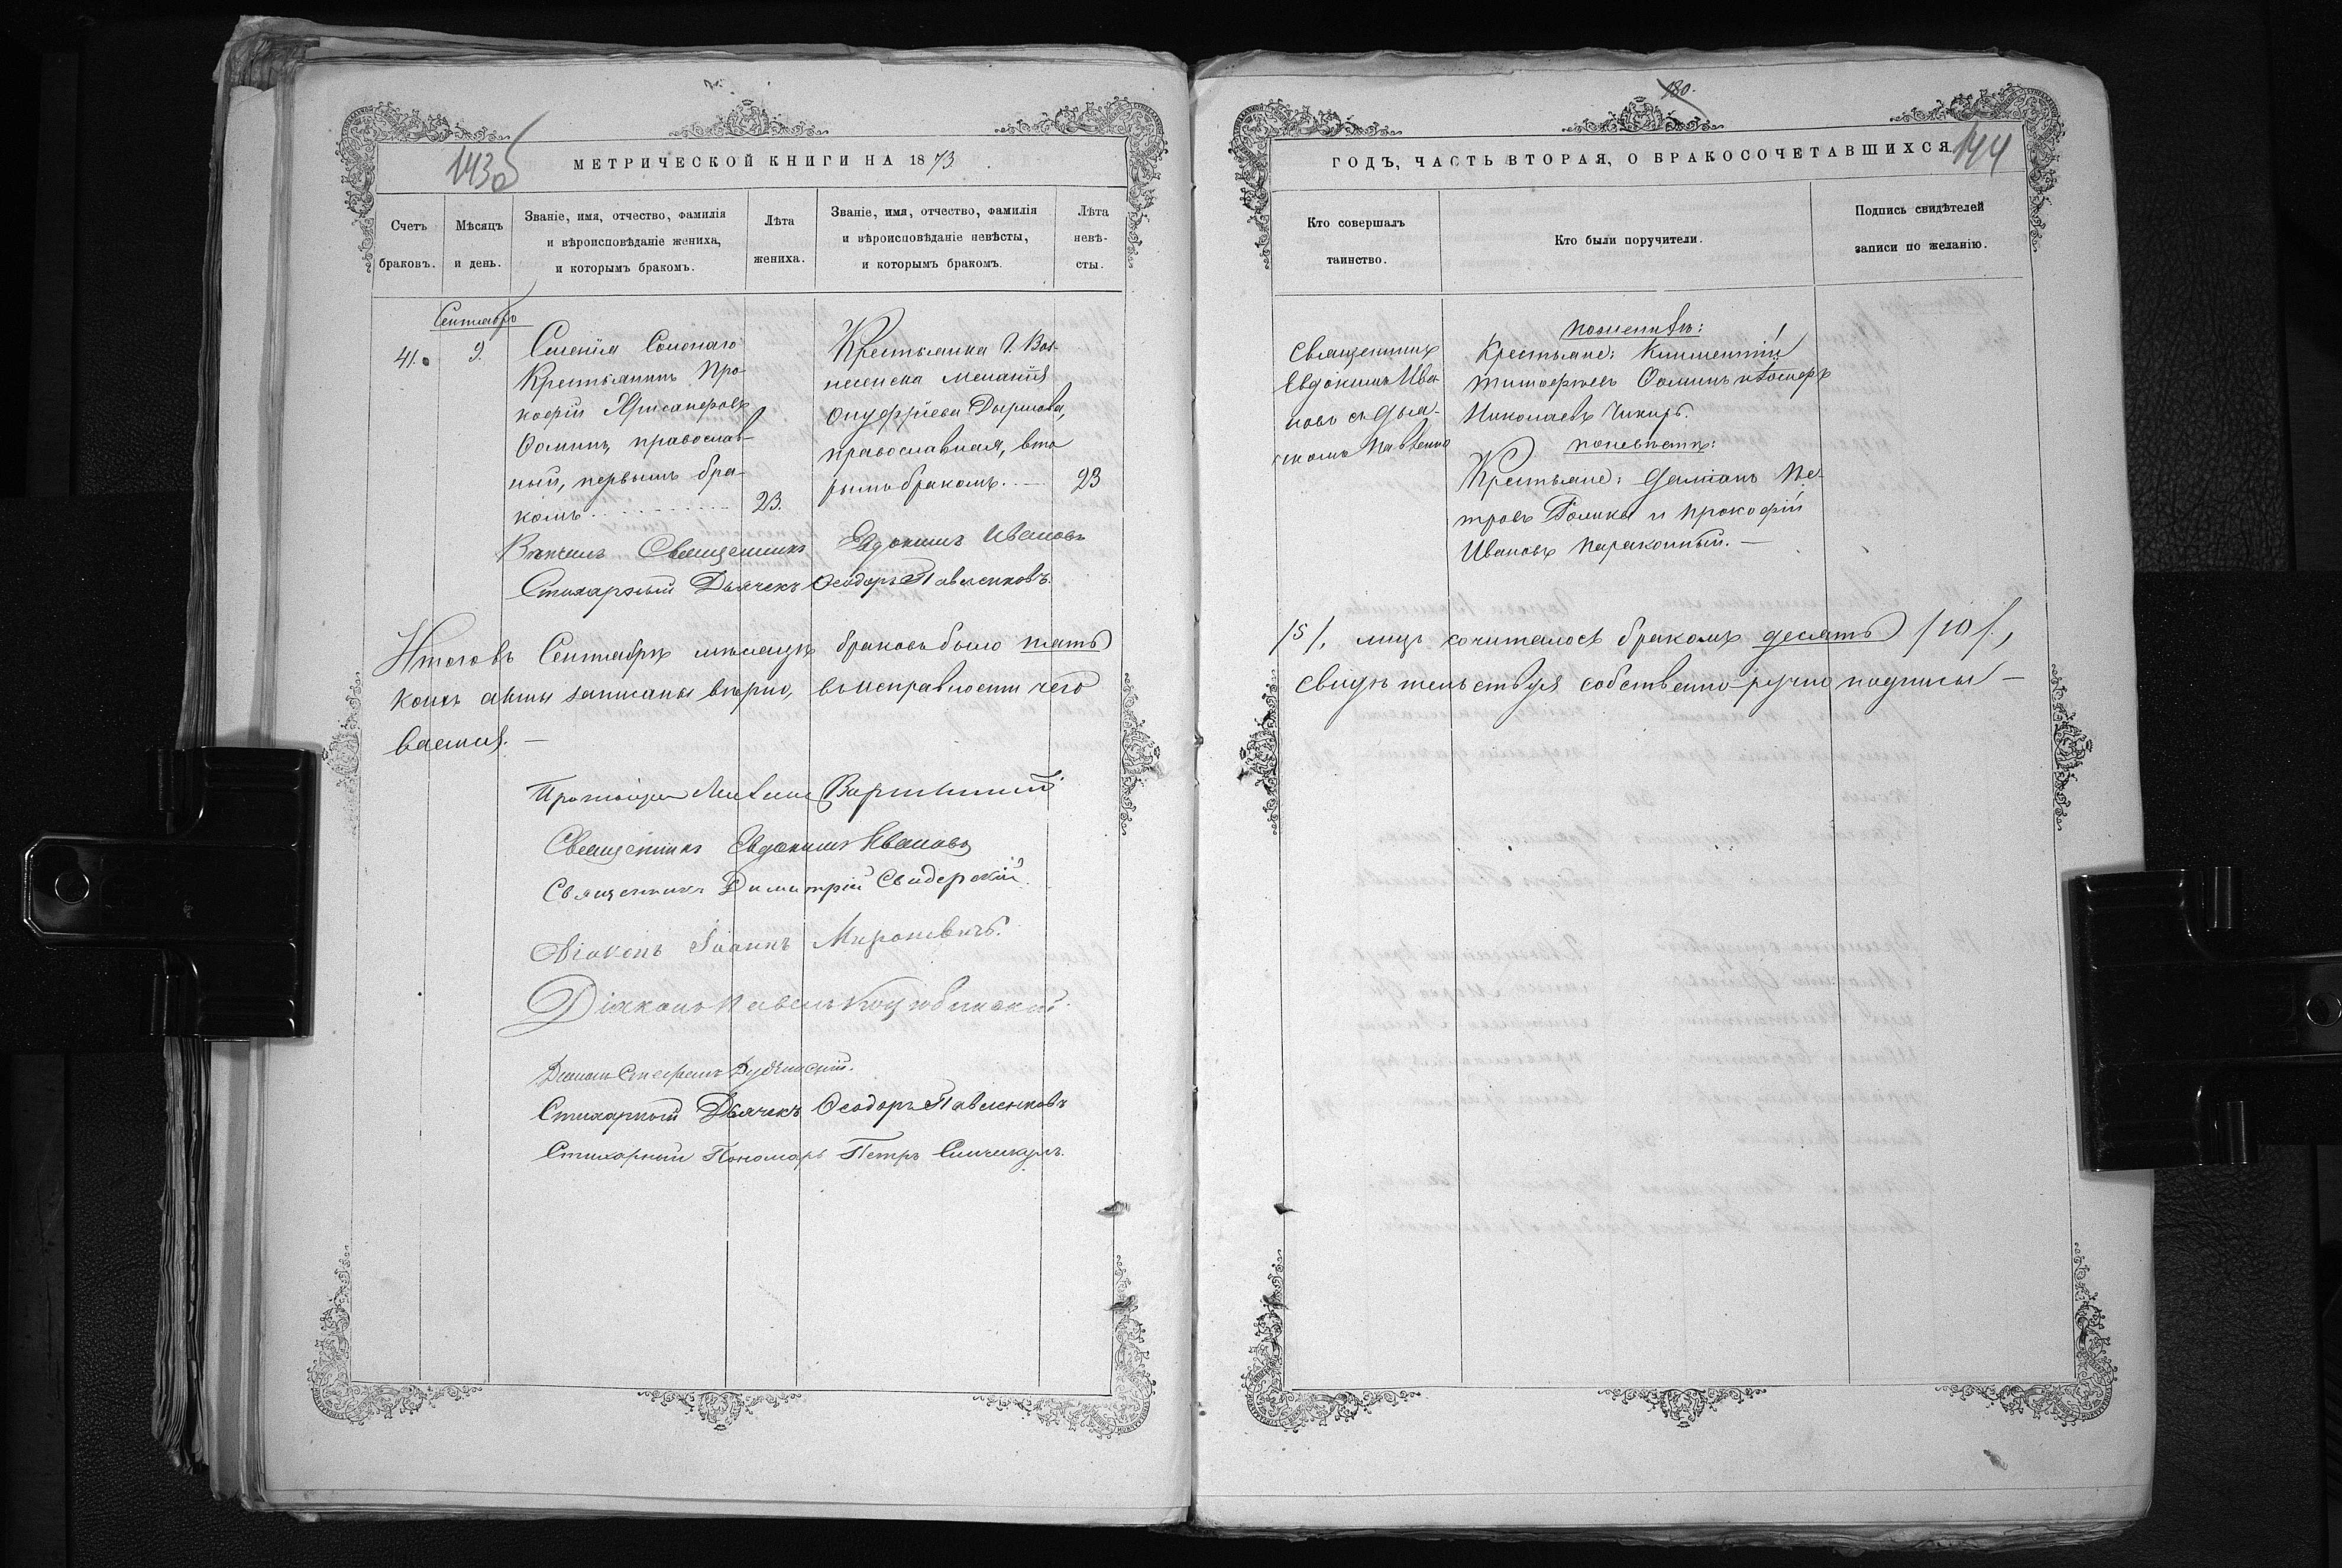 143об
МЕТРИЧЕСКОЙ КНИГИ НА 1873
Счетъ браковъ.
Мѣсяцъ и день.
Званіе, имя, отчество, фамилія
и вѣроисповѣданіе жениха,
и которымъ бракомъ.
Лѣта
жениха.
Званіе, имя, отчество, фамилія
и вѣроисповѣданіе невѣсты,
и которымъ бракомъ.
Лѣта
невѣ-
сты.
Сентябрь
41. 9.
Селенія Солонаго
Крестьянинъ Про
кофій
Ѳоминъ, православ-
ный, первымъ бра-
комъ 23.
Крестьянка г. Воз-
несенска Меланія
Онуфріева
православная, вто
рымъ бракомъ. — 23
Вѣнчалъ Священникъ Евдокимъ Ивановъ
Стихарный Дьячекъ Ѳеодоръ Павленковъ.
Итого въ Сентябрѣ мѣсяцѣ браковъ было пять
коихъ акты записаны вѣрно, въ исправности чего
ваемся. —
Протоіерей
Священникъ Евдокимъ Ивановъ
Священникъ Димитрій Свидерскій.
Діаконъ Іоаннъ Мироневичъ.
Діаконъ Павелъ Коцюбинскій.
Діаконъ Стефанъ
Стихарный Дьячекъ Ѳеодоръ Павленковъ
Стихарный Пономарь Петръ
180.
144
ГОДЪ, ЧАСТЬ ВТОРАЯ, О БРАКОСОЧЕТАВШИХСЯ.
Кто совершалъ
таинство.
Кто были поручители.
Подпись свидѣтелей
записи по желанію.
Священникъ
Евдокимъ Ива
новъ съ Дьяч-
комъ Павленко
По женихѣ:
Крестьяне: Климентій
Тимофеевъ Ѳоминъ и
Николаевъ Чикиръ.
по невѣстѣ:
Крестьяне: Даміанъ Пе-
тровъ и Прокофій
Ивановъ
/5/, лицъ сочиталось бракомъ десять /10/,
свидѣтельствуя собственно-ручно подписы-